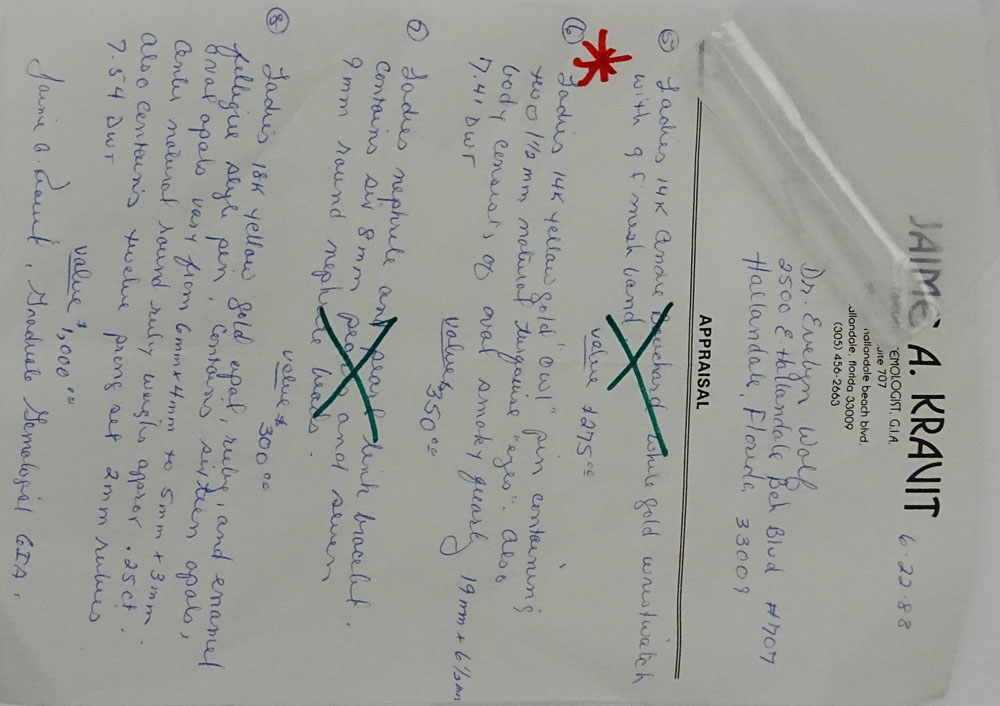 JAIME A. KRAVIT
6-22-88
EMOLOGIST, G.I.A.
hallandale beach blvd.
uite 707
allandale, florida 33009
(305) 456-2663
Dr. Evelyn Wolf
2500 E. Hallandale Bch Blvd #707
Hallandale, Florida 33009
APPRAISAL
⑤ Ladies 14K Andre Bouchard white gold wristwatch
with g.f mesh band
value $275.00
⑥ Ladies 14K yellow gold "owl" pin containing
two 1½ mm natural turquoise "eyes". Also
body consists of oval smoky quartz 19mm + 6½mm
7.41 DWT
value $350.00
⑦ Ladies nephrite and pearl link bracelet.
Contains six 8mm pearls and seven
9mm round nephrite beads.
value $300.00
⑧ Ladies 18K yellow gold opal, ruby, and enamel
filligree style pin. Contains sixteen opals,
oval opals vary from 6mm+4mm to 5mm+3mm.
Center natural round ruby weighs approx .25ct.
also contains twelve prong set 2mm rubies
7.54 DWT
value $1,000.00
Jaime A. Kravit, Graduate Gemologist G.I.A.